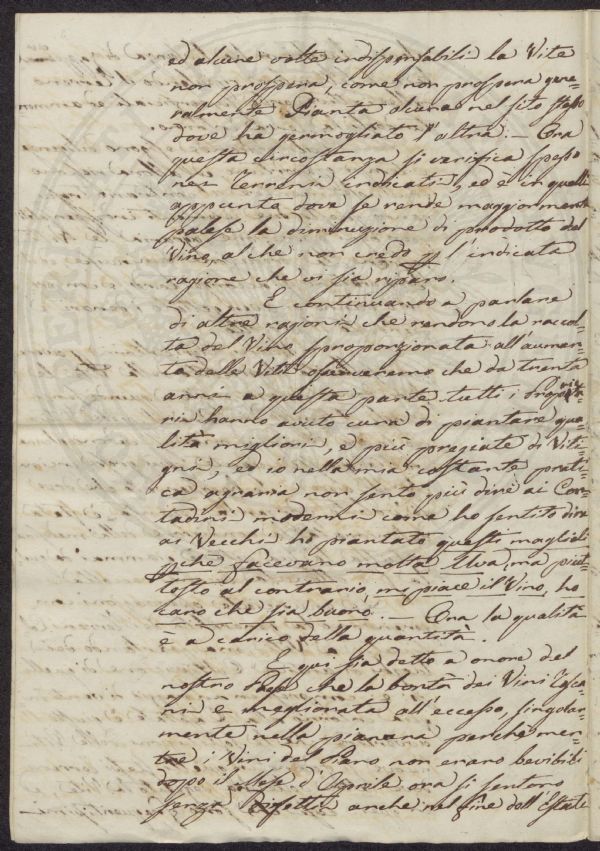 ed alcune volte indispensabili la Vite
non prospera, come non prospera gene=
ralmente Pianta alcuna nel sito stesso
dove ha germogliato l'altra. — Ora
questa circostanza si verifica spesso
nei Terreni indicati, ed è in quelli
appunto dove se rende maggiorment
palese la diminuzione di prodotto del
Vino, al che non credo p l'indicata
ragione che vi sia riparo.
E continuando a parlare
di altre ragioni che rendono la raccol=
ta del Vino sproporzionata all'aumen=
to delle Viti osserveremo che da trenta
anni a questa parte tutti i Proprie=
rii hanno avuto cura di piantare qua=
lità migliori, e più pregiate di Viti=
gni, ed io nella mia costante prati=
ca agraria non sento più dire ai Con=
tadini moderni come ho sentito dire
ai Vecchi ho piantato questi maglioli
pche facevano molta Uva, ma piut=
tosto al contrario, mi piace il Vino, ho
caro che sia buono. — Ora la qualità
è a carico della quantità.
E qui sia detto a onore del
nostro Paese che la bontà dei Vini Tosca=
ni è migliorata all'eccesso, singolar=
mente nella pianura perchè men=
tre i Vini del Piano non erano bevibili
dopo il Mese d'Aprile ora si sentono
senza difetti anche nel fine dell'Estate